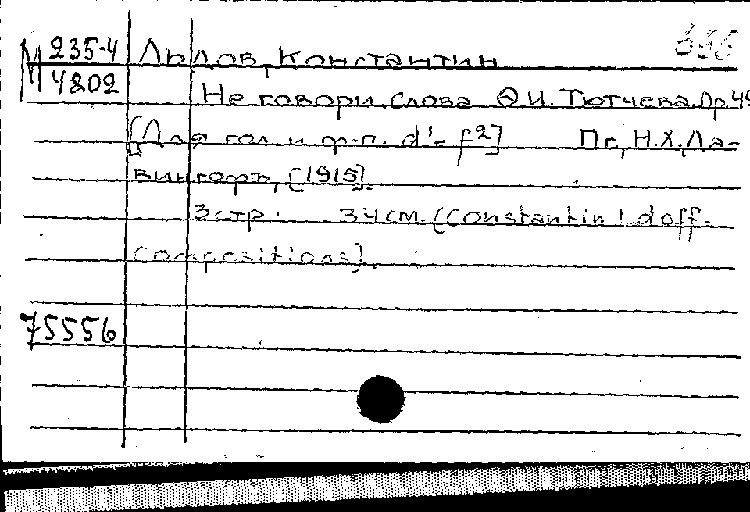 М 235-4
4802
Льдов, Константин
Не говори. Слова Ф.И. Тютчева. Ор. 49
[Для гол. и ф-п. d'-f²] Пг., Н.Х. Да-
вингофъ, [1915].
3 стр. 34 см. (Constantin Ldoff.
Compositions).
75556